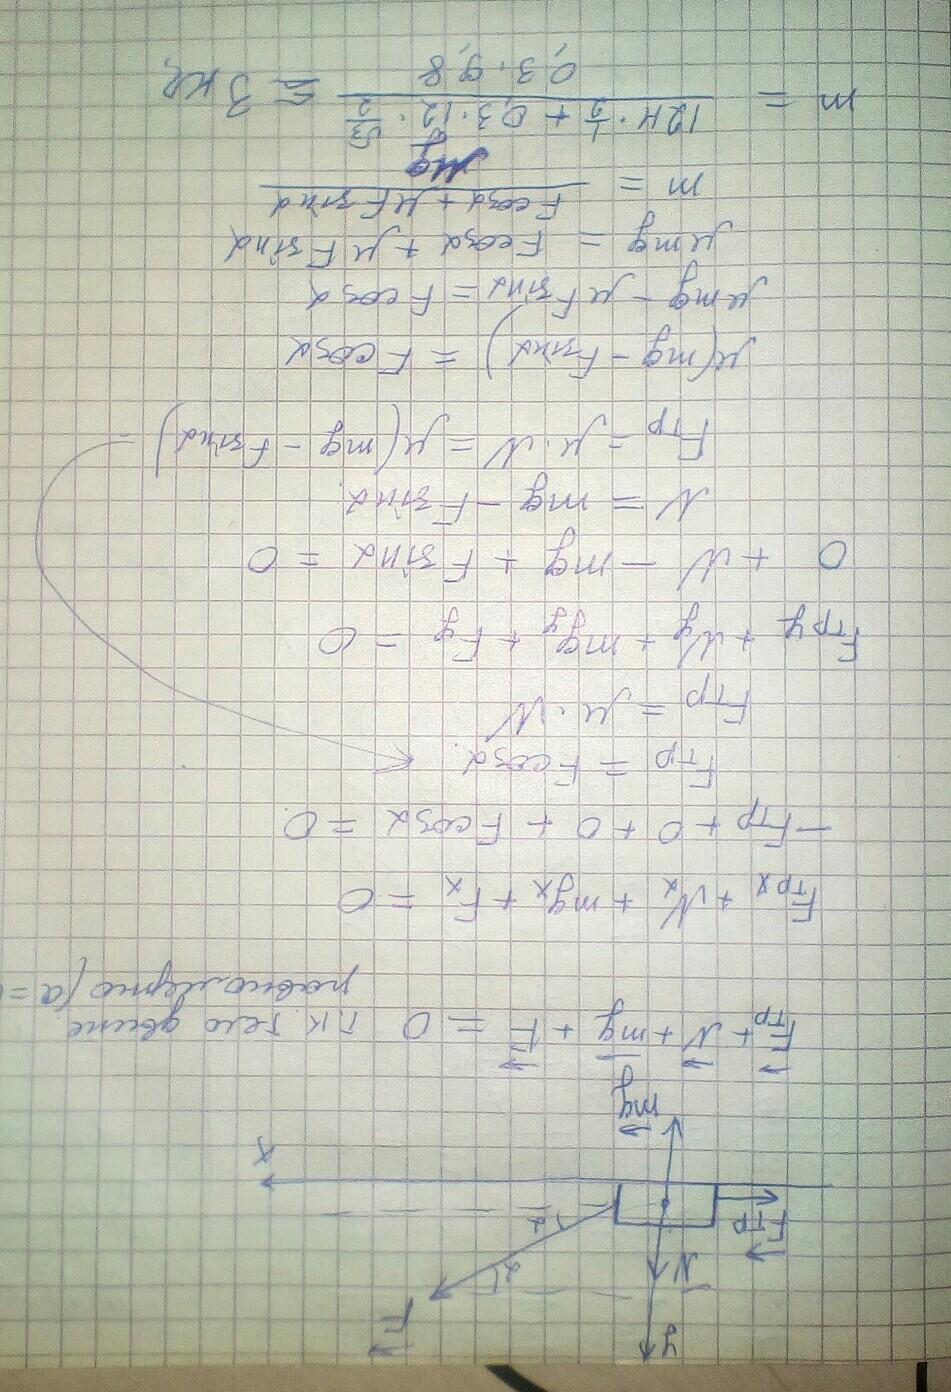 y
N F
Fтр α α
x
mg
Fтр + N + mg + F = 0 т.к. тело движе.
равномерно (a =
Fтрx + Nx + mgx + Fx = 0
-Fтр + 0 + 0 + Fcosα = 0
Fтр = Fcosα.
Fтр = μ·N
Fтрy + Ny + mgy + Fy = 0
0 + N - mg + Fsinα = 0
N = mg - Fsinα.
Fтр = μ·N = μ(mg - Fsinα) =
μ(mg - Fsinα) = Fcosα
μmg - μFsinα = Fcosα
μmg = Fcosα + μFsinα
m = (Fcosα + μFsinα)/(μg)
m = (12Н·1/2 + 0,3·12·√3/2)/(0,3·9,8) = 3 кг